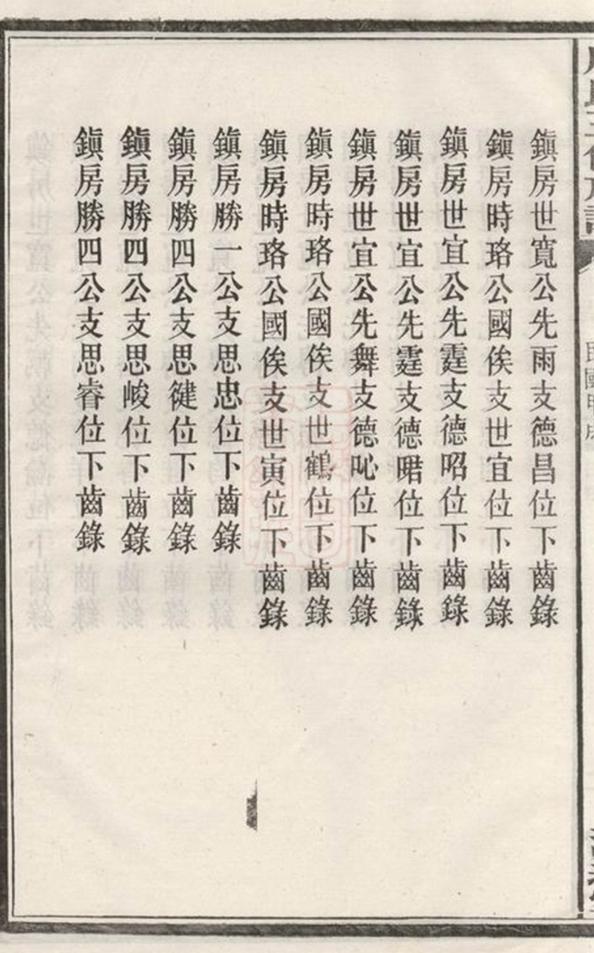 鎭房世寬公先雨支德昌位下齒錄
鎭房時珞公國俟支世宜位下齒錄
鎭房世宜公先霆支德昭位下齒錄
鎭房世宜公先霆支德晤位下齒錄
鎭房世宜公先舞支德吣位下齒錄
鎭房時珞公國俟支世鶴位下齒錄
鎭房時珞公國俟支世寅位下齒錄
鎭房勝一公支思忠位下齒錄
鎭房勝四公支思健位下齒錄
鎭房勝四公支思峻位下齒錄
鎭房勝四公支思睿位下齒錄